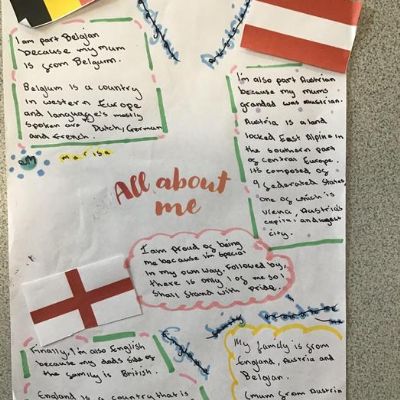 I am part Belgian
because my mum
is from Belgium.
Belgium is a country
in western Europe
and language's mostly
spoken are Dutch, German
and French.
I'm also part Austrian
because my mums
grandad was Austrian.
Austria is a land
locked East Alpine in
the southern part
of central Europe.
Its composed of
9 federated States
one of which is
Viena, Austria's
capital and largest
city.
All about
me
I am proud of being
me because i'm special
in my own way. Followed by,
there is only 1 of me so I
shall stand with pride.
Finally, I'm also English
because my dads side of
the family is British.
England is a country that is
My family is from
England, Austria and
Belgian.
(mum from Austria